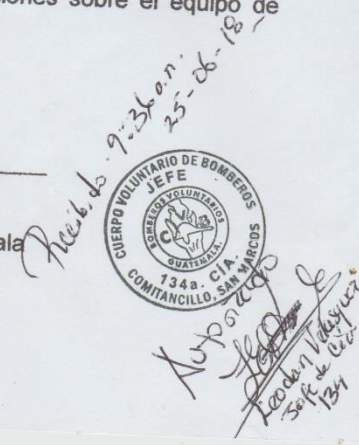 iones sobre el equipo de
Recibido. 9:36 a.n.
25-06-18-
ala
CUERPO VOLUNTARIO DE BOMBEROS
JEFE
BOMBEROS VOLUNTARIOS
GUATEMALA.
134a. CIA.
COMITANCILLO, SAN MARCOS
Autorizado
Leodan Velasquez
Jefe de Cía
134